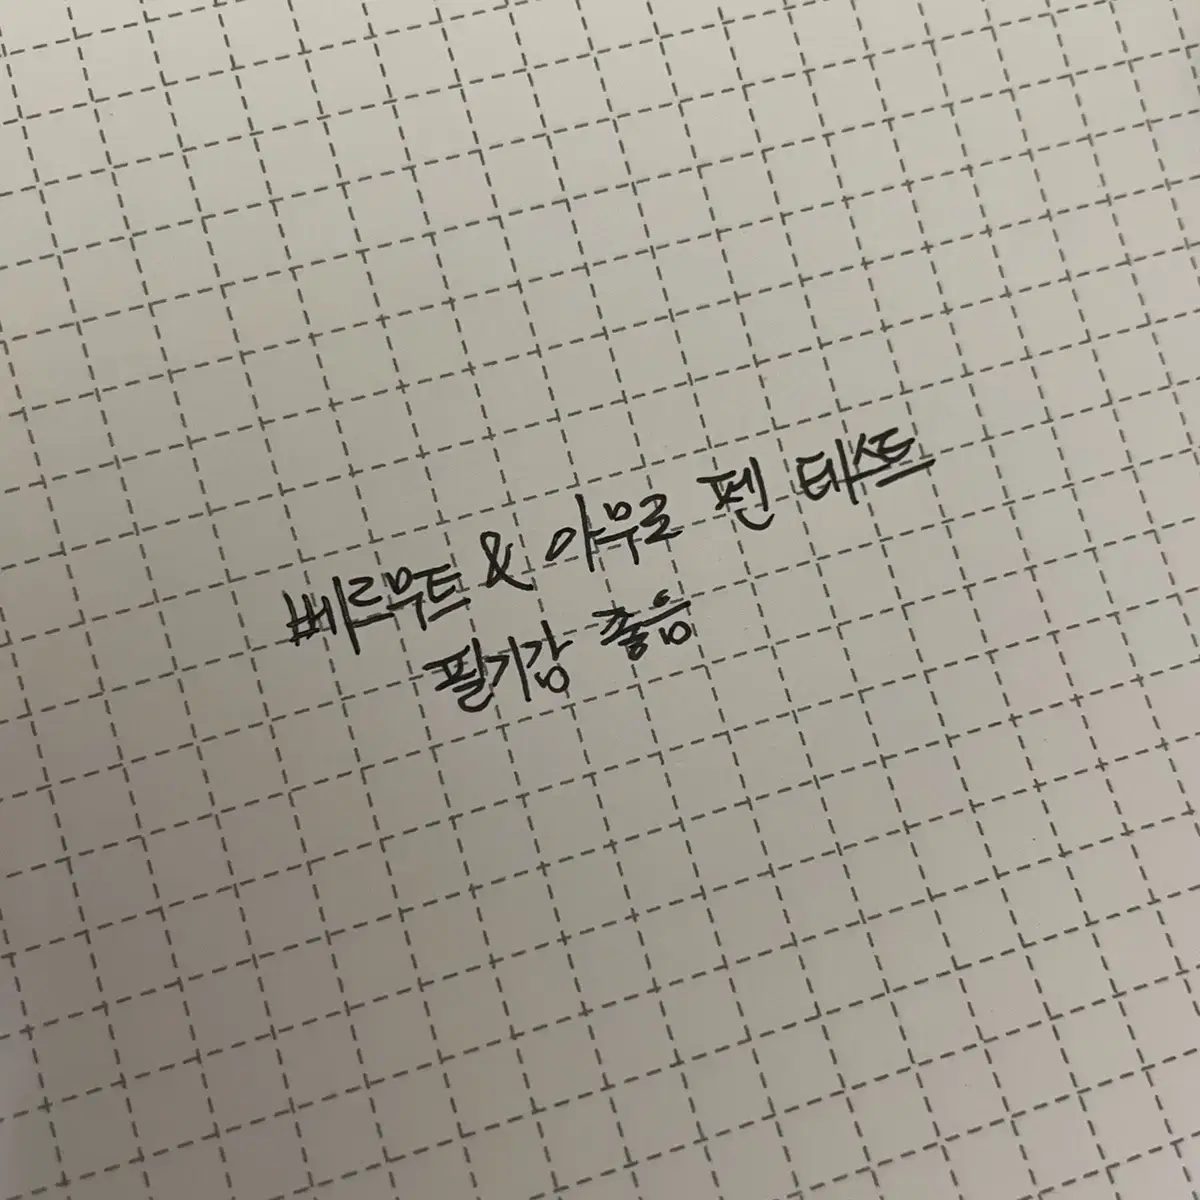 베르무트 & 아무로 펜 테스트
필기감 좋음